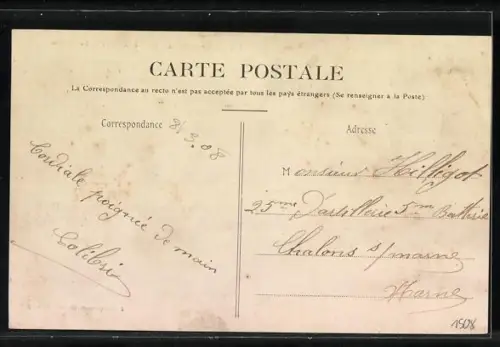 CARTE POSTALE
La Correspondance au recto n'est pas acceptée par tous les pays étrangers (Se renseigner à la Poste)
Correspondance
8.3.08
Cordiale
poignée de main
Colibri
Adresse
Monsieur Hilligot
25me d'artillerie 5me Batterie
Chalons s/marne
Marne
1508